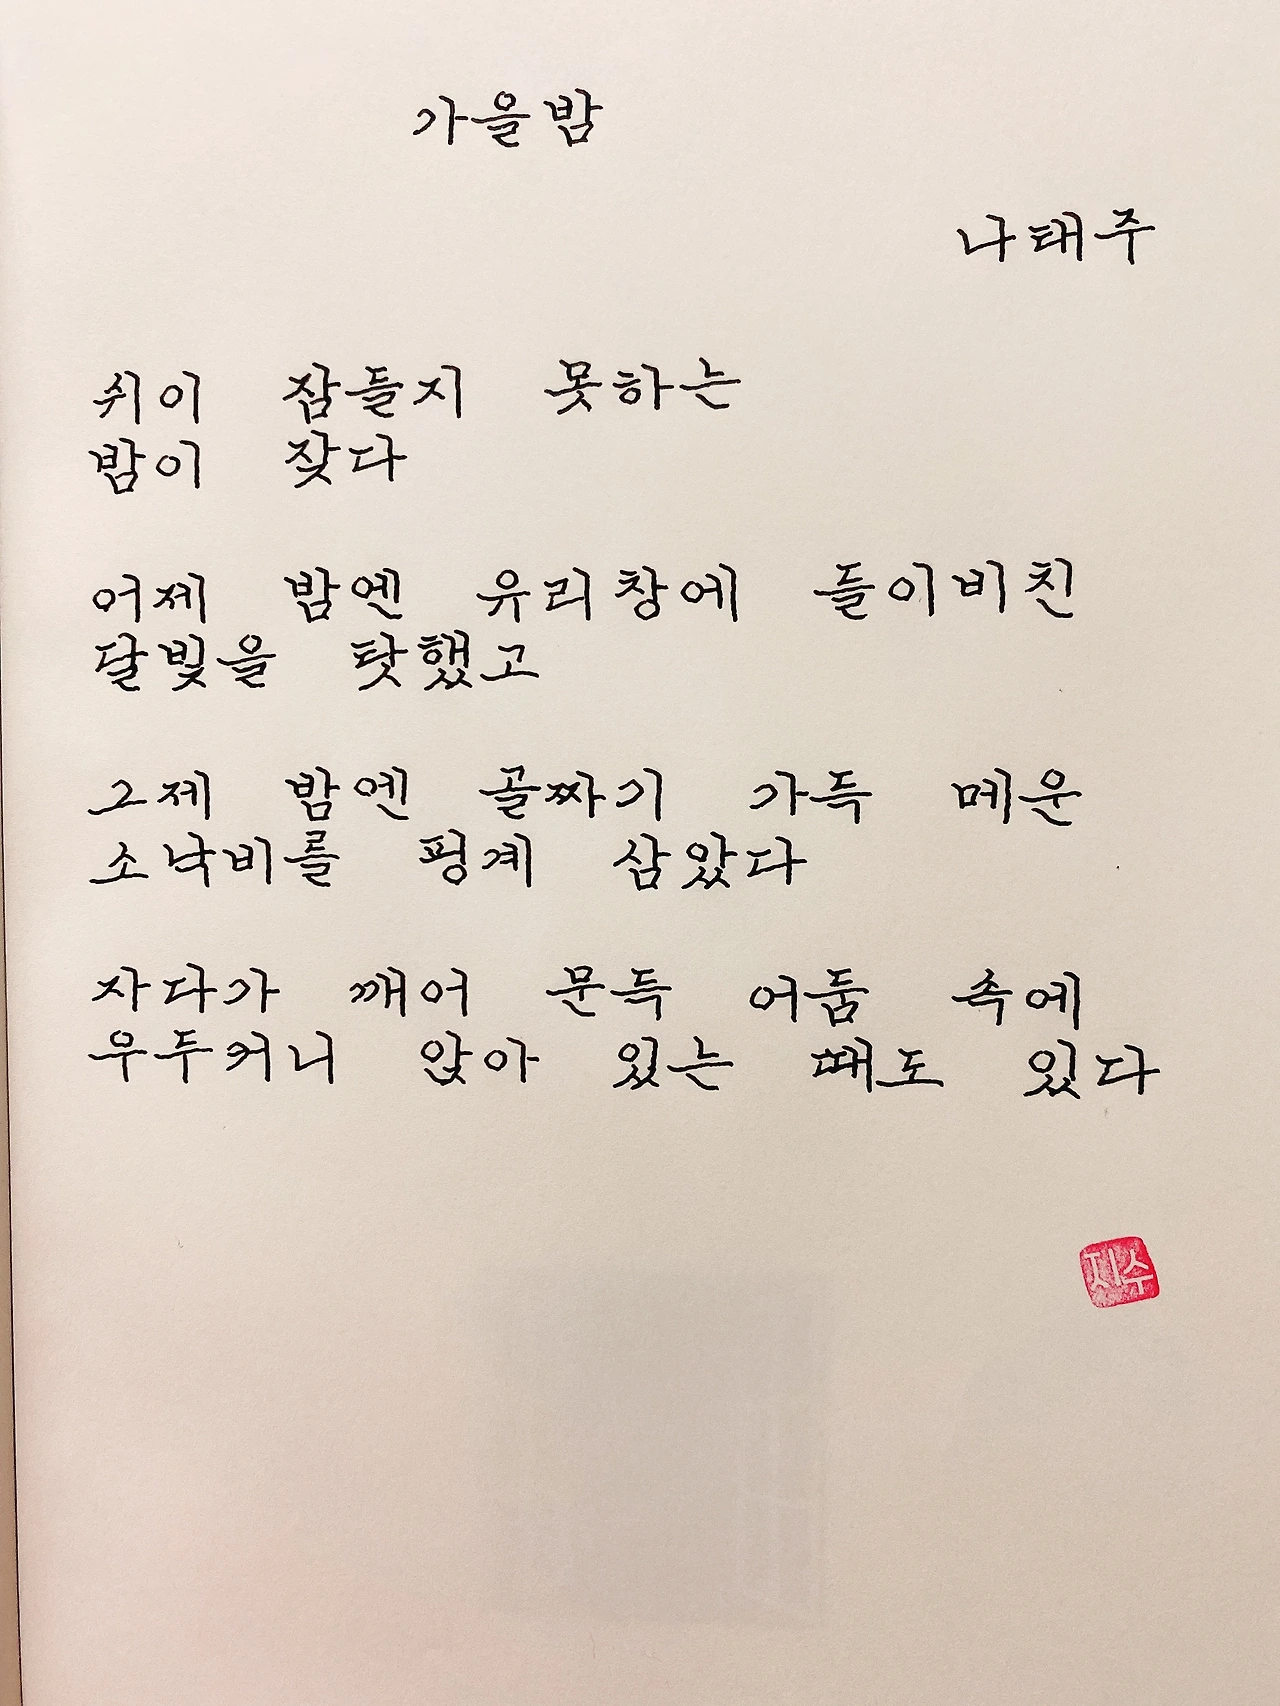 가을밤
나태주
쉬이 잠들지 못하는
밤이 잦다
어제 밤엔 유리창에 들이비친
달빛을 탓했고
그제 밤엔 골짜기 가득 메운
소낙비를 핑계 삼았다
자다가 깨어 문득 어둠 속에
우두커니 앉아 있는 때도 있다
지수